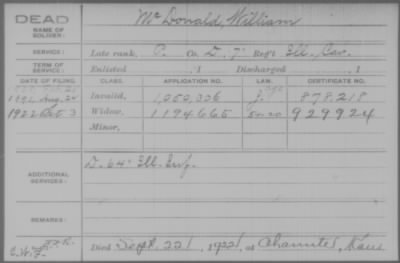 DEAD
NAME OF SOLDIER:
McDonald, William
SERVICE:
Late rank, P. Co. D, 7" Reg't Ill. Cav.
TERM OF SERVICE:
Enlisted , 1 Discharged , 1
DATE OF FILING. CLASS. APPLICATION NO. LAW. CERTIFICATE NO.
1891 Aug. 24 Invalid, 1,050,306 J. 878,218
1922 Oct 3 Widow, 1194665 929924
Minor,
ADDITIONAL SERVICES:
D. 64" Ill. Inf.
REMARKS:
C.W.F.
Died Sept. 22, 1922, at Chanute, Kans